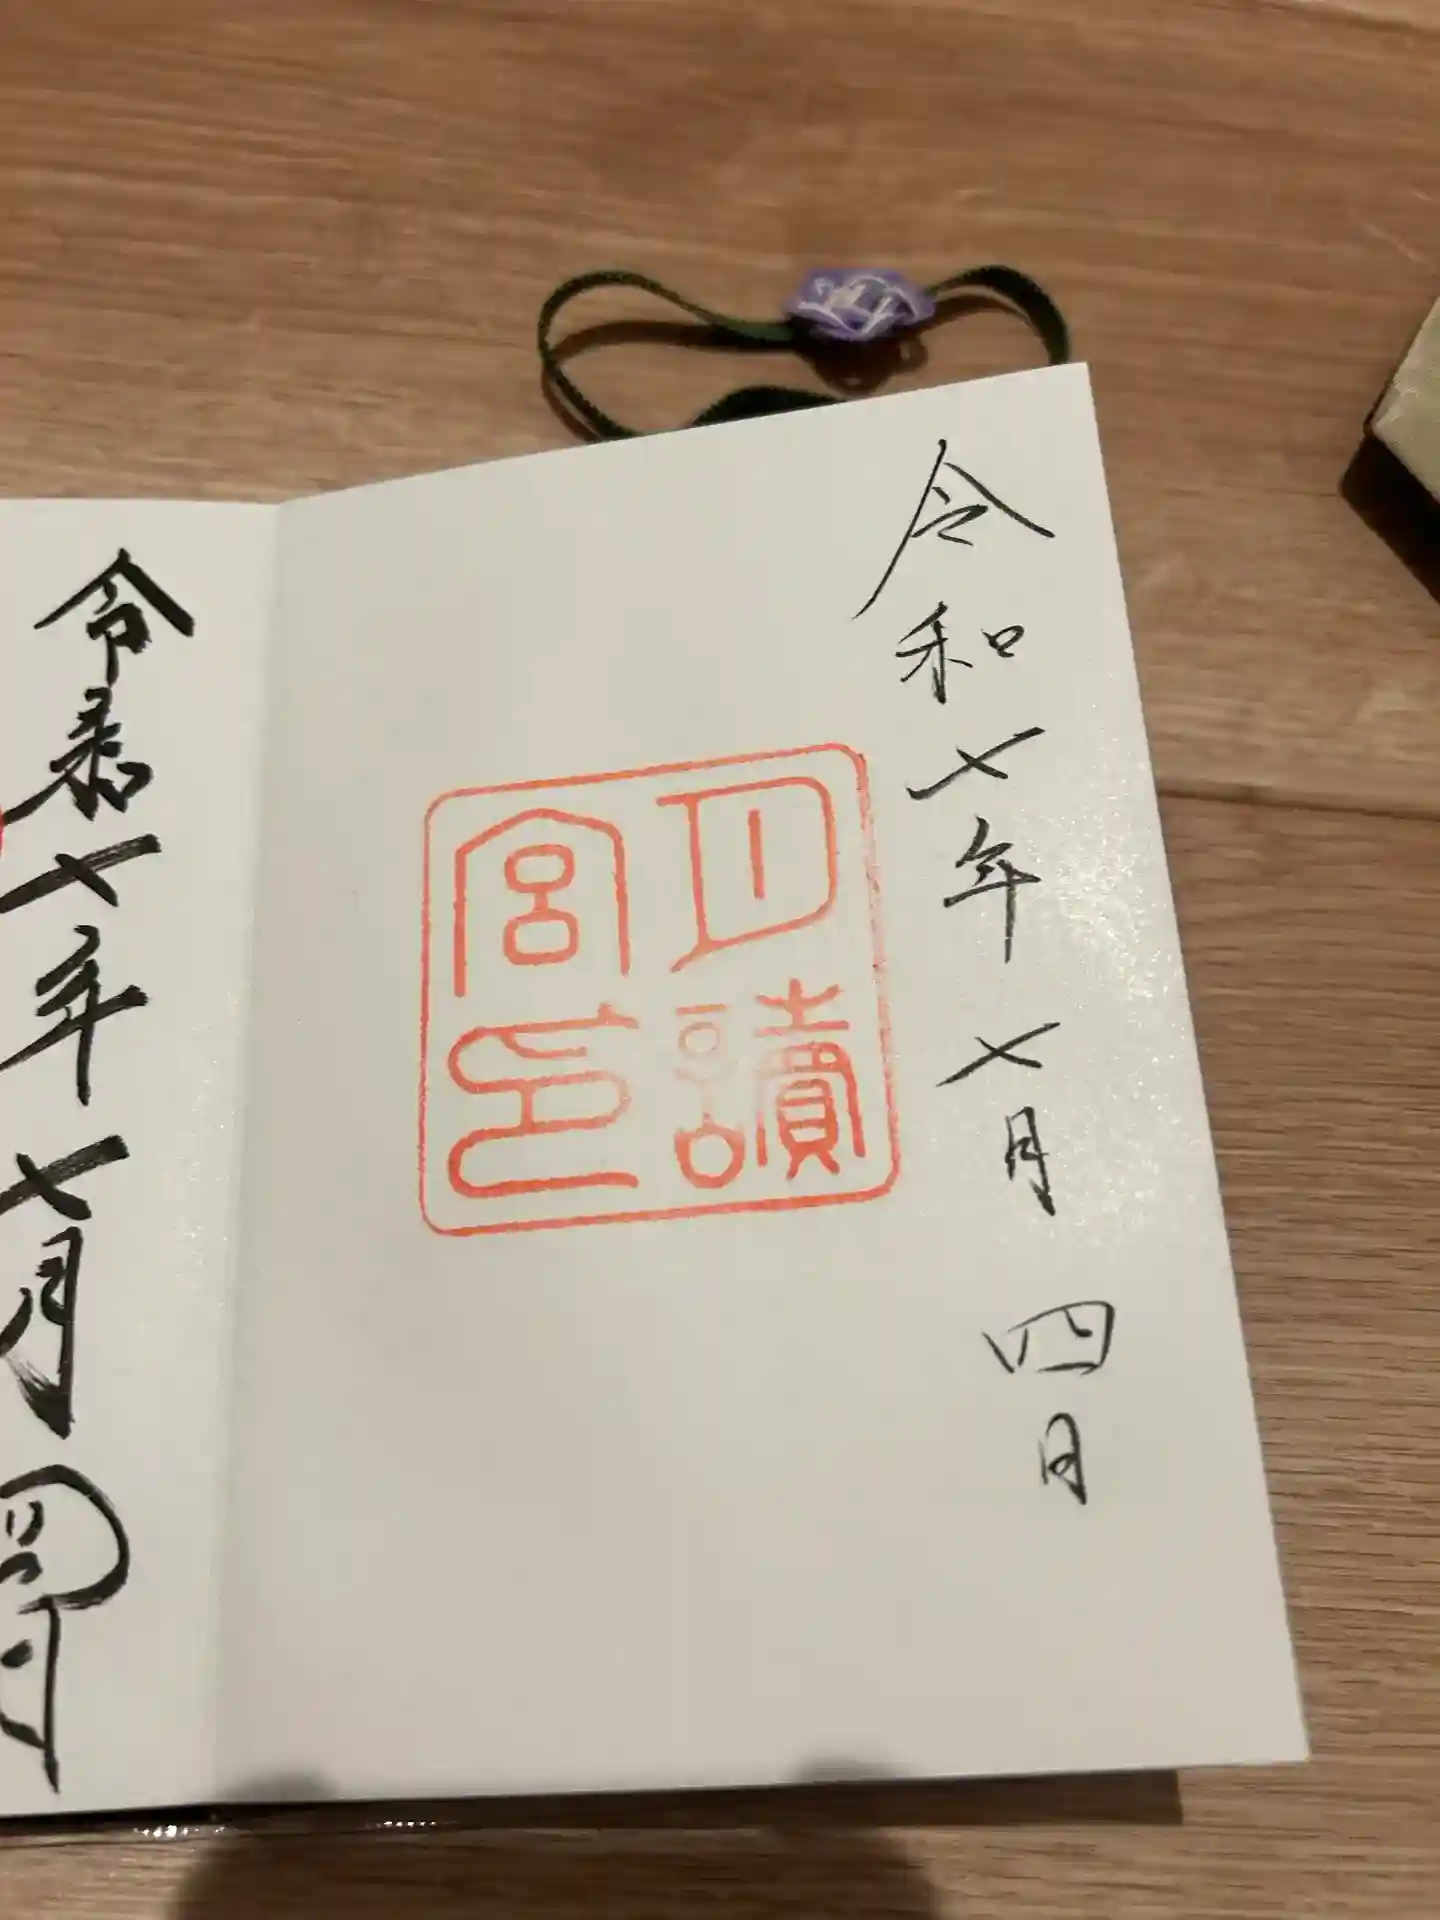 令和七年七月四日
月讀宮印
令和七年七月四日